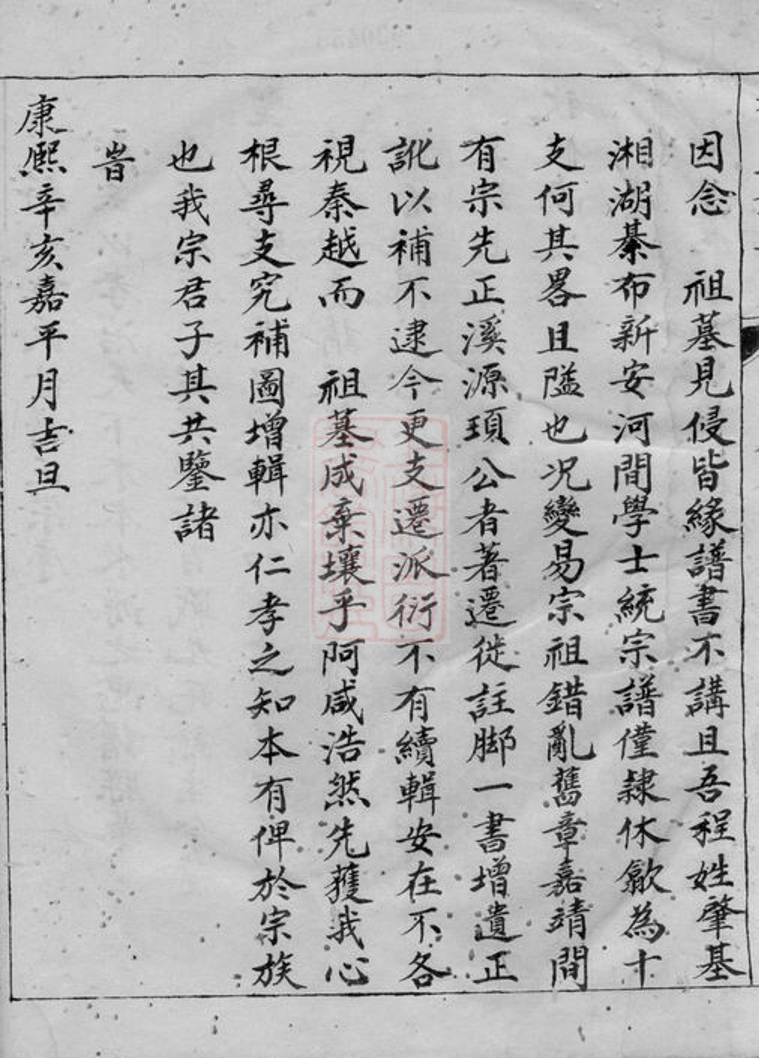 因念　祖墓見侵皆緣譜書不講且吾程姓肇基
湘湖綦布新安河間學士統宗譜僅隸休歙為十
支何其畧且隘也况變易宗祖錯亂舊章嘉靖間
有宗先正溪源頊公者著遷徙註脚一書增遺正
訛以補不逮今更支遷派衍不有續輯安在不各
視秦越而　祖墓成棄壤乎阿咸浩然先獲我心
根尋支究補圖增輯亦仁孝之知本有俾於宗族
也我宗君子其共鑒諸
旹
康熈辛亥嘉平月吉旦